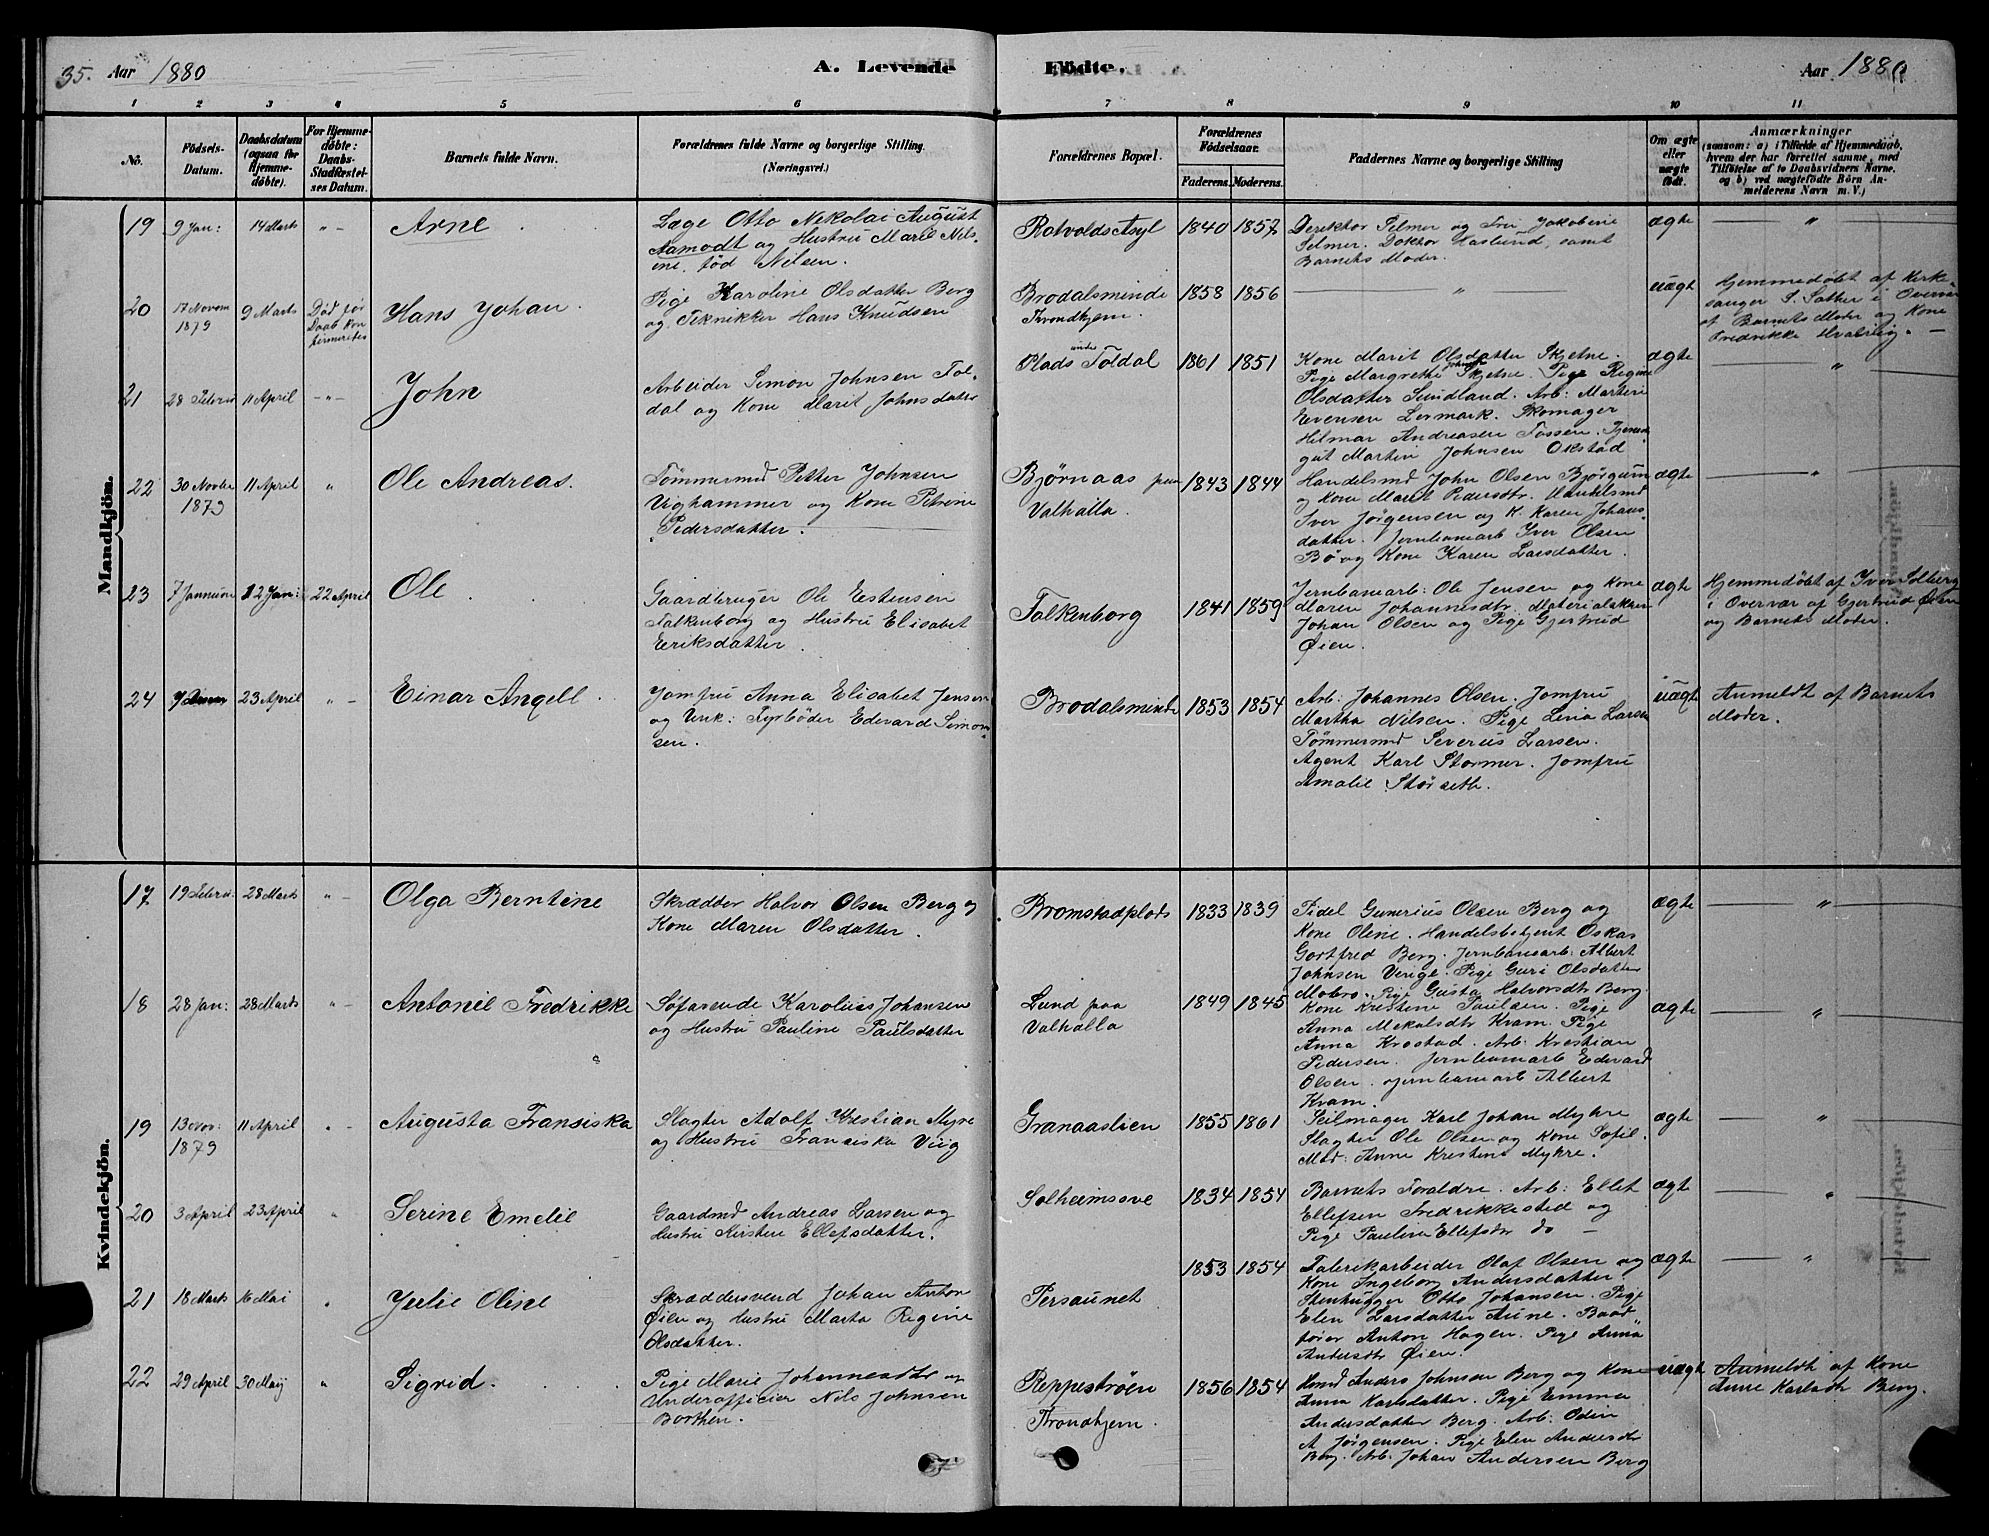 35. Aar 1880 A. Levende Födte. Aar 1880
1 2 3 4 5 6 7 8 9 10 11
No. Födsels-Datum. Daabsdatum (ogsaa for Hjemmedöbte). For Hjemmedöbte: Daabs-Stadfæstelses Datum. Barnets fulde Navn. Forældrenes fulde Navne og borgerlige Stilling. (Næringsvei.) Forældrenes Bopæl. Forældrenes Födselsaar. Faderens. Moderens. Faddernes Navne og borgerlige Stilling Om ægte eller uægte födt. Anmærkninger (saasom: a) i Tilfælde af Hjemmedaab, hvem der har forrettet samme, med Tilföielse af to Daabsvidners Navne, og b) ved uægtefödte Börn Anmelderens Navn m. V.)
Mandkjön.
19 9 Jan: 14 Marts " - Arne
Læge Otto Nikolai August
Aamodt og Hustru Marie Nils-
ine, fød Nilsen.
Rotvolds Asyl 1840 1857
Derektør Selmer og Fru Jakobine
Selmer. Doktor Haslund, samt
Barnets Moder.
ægte "
20 17 Novem 1879 9 Marts Død før Daab kon
Hans Johan
Pige Karoline Olsdatter Berg
og Tekniker Hans Knudsen
Brodalsminde
Throndhjem.
1858 1856 " uægt
Hjemmedøbt af Kirke-
sanger S. Sæther i Overvær
af Barnets Moder og Kone
Fredrikke
21 28 Febru 11 April - " - John
Arbeider Simon Johnsen Tol-
dal og Kone Marit Johnsdatter
Plads under Toldal 1861 1851
Kone Marit Olsdatter Skjetne.
Pige Margrethe Johnsd Skjetne. Pige Regine
Olsdatter Sundland. Arb: Martin
Evensen Lermark. Skomager
Hilmar Andreasen Fossen. Tjeneste
gut Martin Johnsen Okstad
ægte "
22 30 Novbr 1879 11 April " Ole Andreas.
Tömmermd Petter Johnsen
Vighammer og Kone Petrine
Pedersdatter.
Bjørnaas paa
Valhalla.
1843 1844
Handelsmd John Olsen Bjørgum
og Kone Marit Pedersdtr. Handelsmd
Iver Jørgensen og K. Karen Johans
datter. Jernbanearb Iver Olsen
Bø og Kone Karen Larsdatter.
ægte "
23 7 Januar 12 Jan: 22 April Ole
Gaardbruger Ole Estensen
Falkenborg og Hustru Elisabet
Eeriksdatter.
Falkenborg 1841 1859
Jernbanarb: Ole Jensen og Kone
Maren Johannesdtr. Materialskr
Johan Olsen og Pige Gjertrud
Øien.
ægte
Hjemmedøbt af Iver Solberg
i Overvær af Gjertrud Øien
og Barnets Moder.
24 23 April " - Einar Angell
Jomfru Anna Elisabet Jensen
og Unk: Fyrbøder Edevard Simon
sen.
Brodalsminde 1853 1854
Arb: Johannes Olsen. Jomfru
Martha Nilsen. Pige Lina Larsen
Tømmermd Severius Larsen.
Agent Karl Stormer. Jomfru
Amalie Størseth.
uægte
Anmeldt af Barnets
Moder.
Kvindekjön.
17 19 Febru: 28 Marts " - Olga Berntine
Skrædder Halvor Olsen Berg og
Kone Maren Olsdatter.
Bromstadplads 1833 1839
Fidel Gunerius Olsen Berg og
Kone Oline. Handelsbetjent Oskar
Gottfred Berg. Jernbanearb: Albert
Johnsen Verige. Pige Guri Olsdatter
Mobro. Pige Gusta Halvorsdtr Berg.
ægte "
18 28 Jan: 28 Marts " - Antonie Fredrikke
Søfarende Karolius Johansen
og Hustru Pauline Paulsdatter
Lund paa
Valhalla
1849 1845
Kone Kristine Paulsen. Pige
Anna Mekalsdtr Kram. Pige
Anna Krostad. Arb: Krestian
Pedersen. Jernbanearb Edevard
Olsen. Jernbanearb Albert
Kram.
ægte "
19 13 Nov: 1879 11 April " Augusta Fransiska
Slagter Adolf Kristian Myre
og Hustru Franciska Viig
Granaaslien 1855 1861
Seilmager Karl Johan Myhre
Slagter Ole Olsen og Kone Sofie.
Mad: Anne Krestine Myhre.
ægte "
20 3 April 23 April " Serine Emelie
Gaardmd Andreas Larsen og
Hustru Kirstine Ellefsdatter.
Solheimsøve 1834 1854
Barnets Foraldre. Arb: Ellet
Ellefsen Fredrikkested og
Pige Pauline Ellefsdtr do -
ægte "
21 18 Marts 16 Mai " Julie Oline
Skræddersvend Johan Anton
Øien og Hustru Marta Regine
Olsdatter.
Persaunet 1853 1854
Fabrikarbeider Olaf Olsen og
Kone Ingeborg Andersdatter
Stenhugger Otto Johansen. Pige
Elen Larsdatter Aune. Baad
fører Anton Hagen. Pige Anna
Andersdtr Øien.
ægte "
22 29 April 30 Maij " Sigrid.
Pige Marie Johannesdtr og
Underofficier Nils Johnsen
Borthen.
Reppestrøen
Trondhjem.
1856 1854
Hmd Anders Johnsen Berg og Kone
Anna Karlsdatter. Pige Emma
Andersdatter Berg. Arb: Odin
A Jørgensen. Pige Elen Andersdtr
Berg. Arb. Johan Andersen Berg
uægte
Anmeldt af Kone
Anne Karlsdtr Berg.